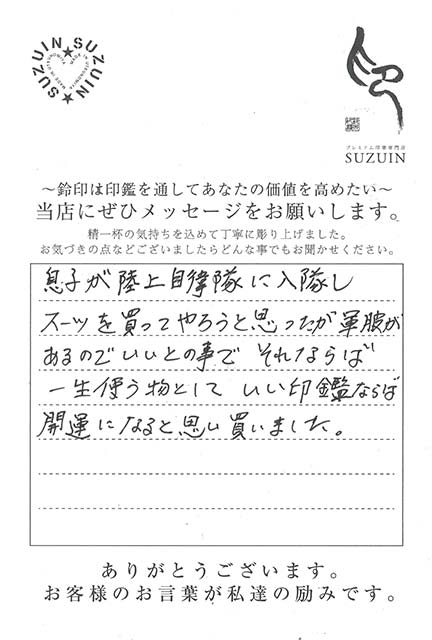 SUZUIN★SUZUIN★
プレミアム印章専門店
SUZUIN
～鈴印は印鑑を通してあなたの価値を高めたい～
当店にぜひメッセージをお願いします。
精一杯の気持ちを込めて丁寧に彫り上げました。
お気づきの点などございましたらどんな事でもお聞かせください。
息子が陸上自衛隊に入隊し
スーツを買ってやろうと思ったが軍服が
あるのでいいとの事で それならば
一生使う物として いい印鑑ならば
開運になると思い買いました。
ありがとうございます。
お客様のお言葉が私達の励みです。